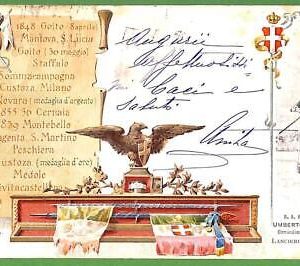 1848 Goito (8 aprile)
Mantova, S. Lucia
Goito (30 maggio)
Staffalo
Sommacampagna
Custoza, Milano
Novara (medaglia d'argento)
1855-56 Cernaia
1859 Montebello
S. Martino
Peschiera
Custoza (medaglia d'oro)
Medole
Auguri
affettuosi
Baci e
saluti
Anita
UMBERTO
LANCIERI